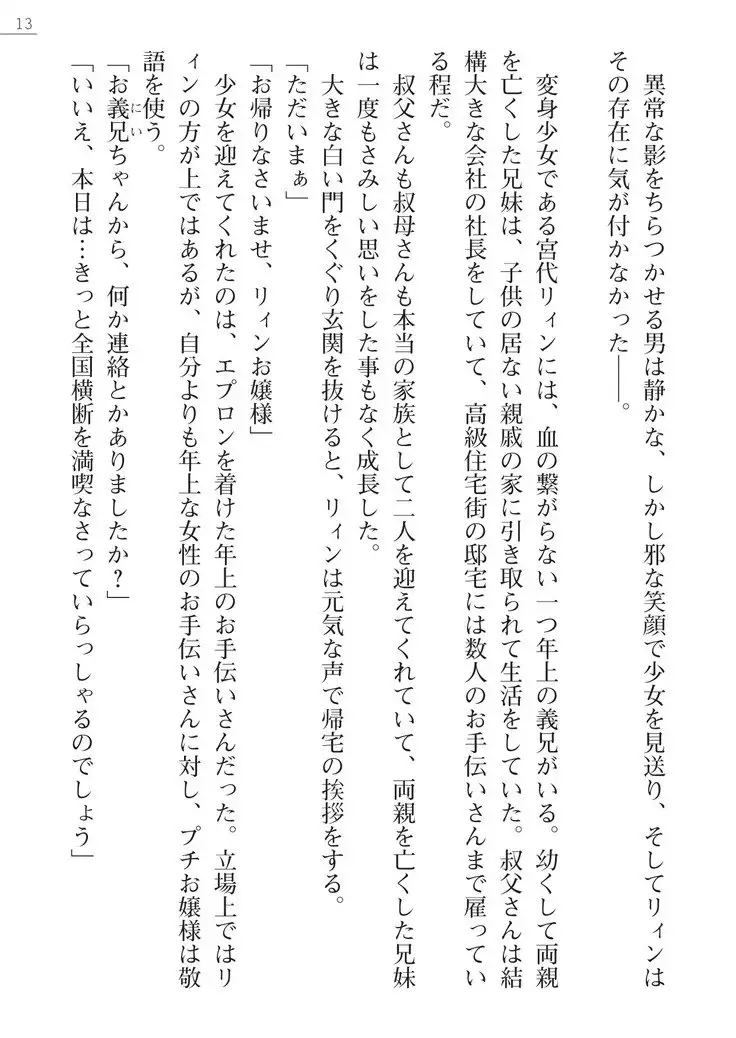 13
異常な影をちらつかせる男は静かな、しかし邪な笑顔で少女を見送り、そしてリィンは
その存在に気が付かなかった――。
変身少女である宮代リィンには、血の繋がらない一つ年上の義兄がいる。幼くして両親
を亡くした兄妹は、子供の居ない親戚の家に引き取られて生活をしていた。叔父さんは結
構大きな会社の社長をしていて、高級住宅街の邸宅には数人のお手伝いさんまで雇ってい
る程だ。
叔父さんも叔母さんも本当の家族として二人を迎えてくれていて、両親を亡くした兄妹
は一度もさみしい思いをした事もなく成長した。
大きな白い門をくぐり玄関を抜けると、リィンは元気な声で帰宅の挨拶をする。
「ただいまぁ」
「お帰りなさいませ、リィンお嬢様」
少女を迎えてくれたのは、エプロンを着けた年上のお手伝いさんだった。立場上ではリ
ィンの方が上ではあるが、自分よりも年上な女性のお手伝いさんに対し、プチお嬢様は敬
語を使う。
「お義兄ちゃんから、何か連絡とかありましたか？」
にい
「いいえ、本日は…きっと全国横断を満喫なさっていらっしゃるのでしょう」